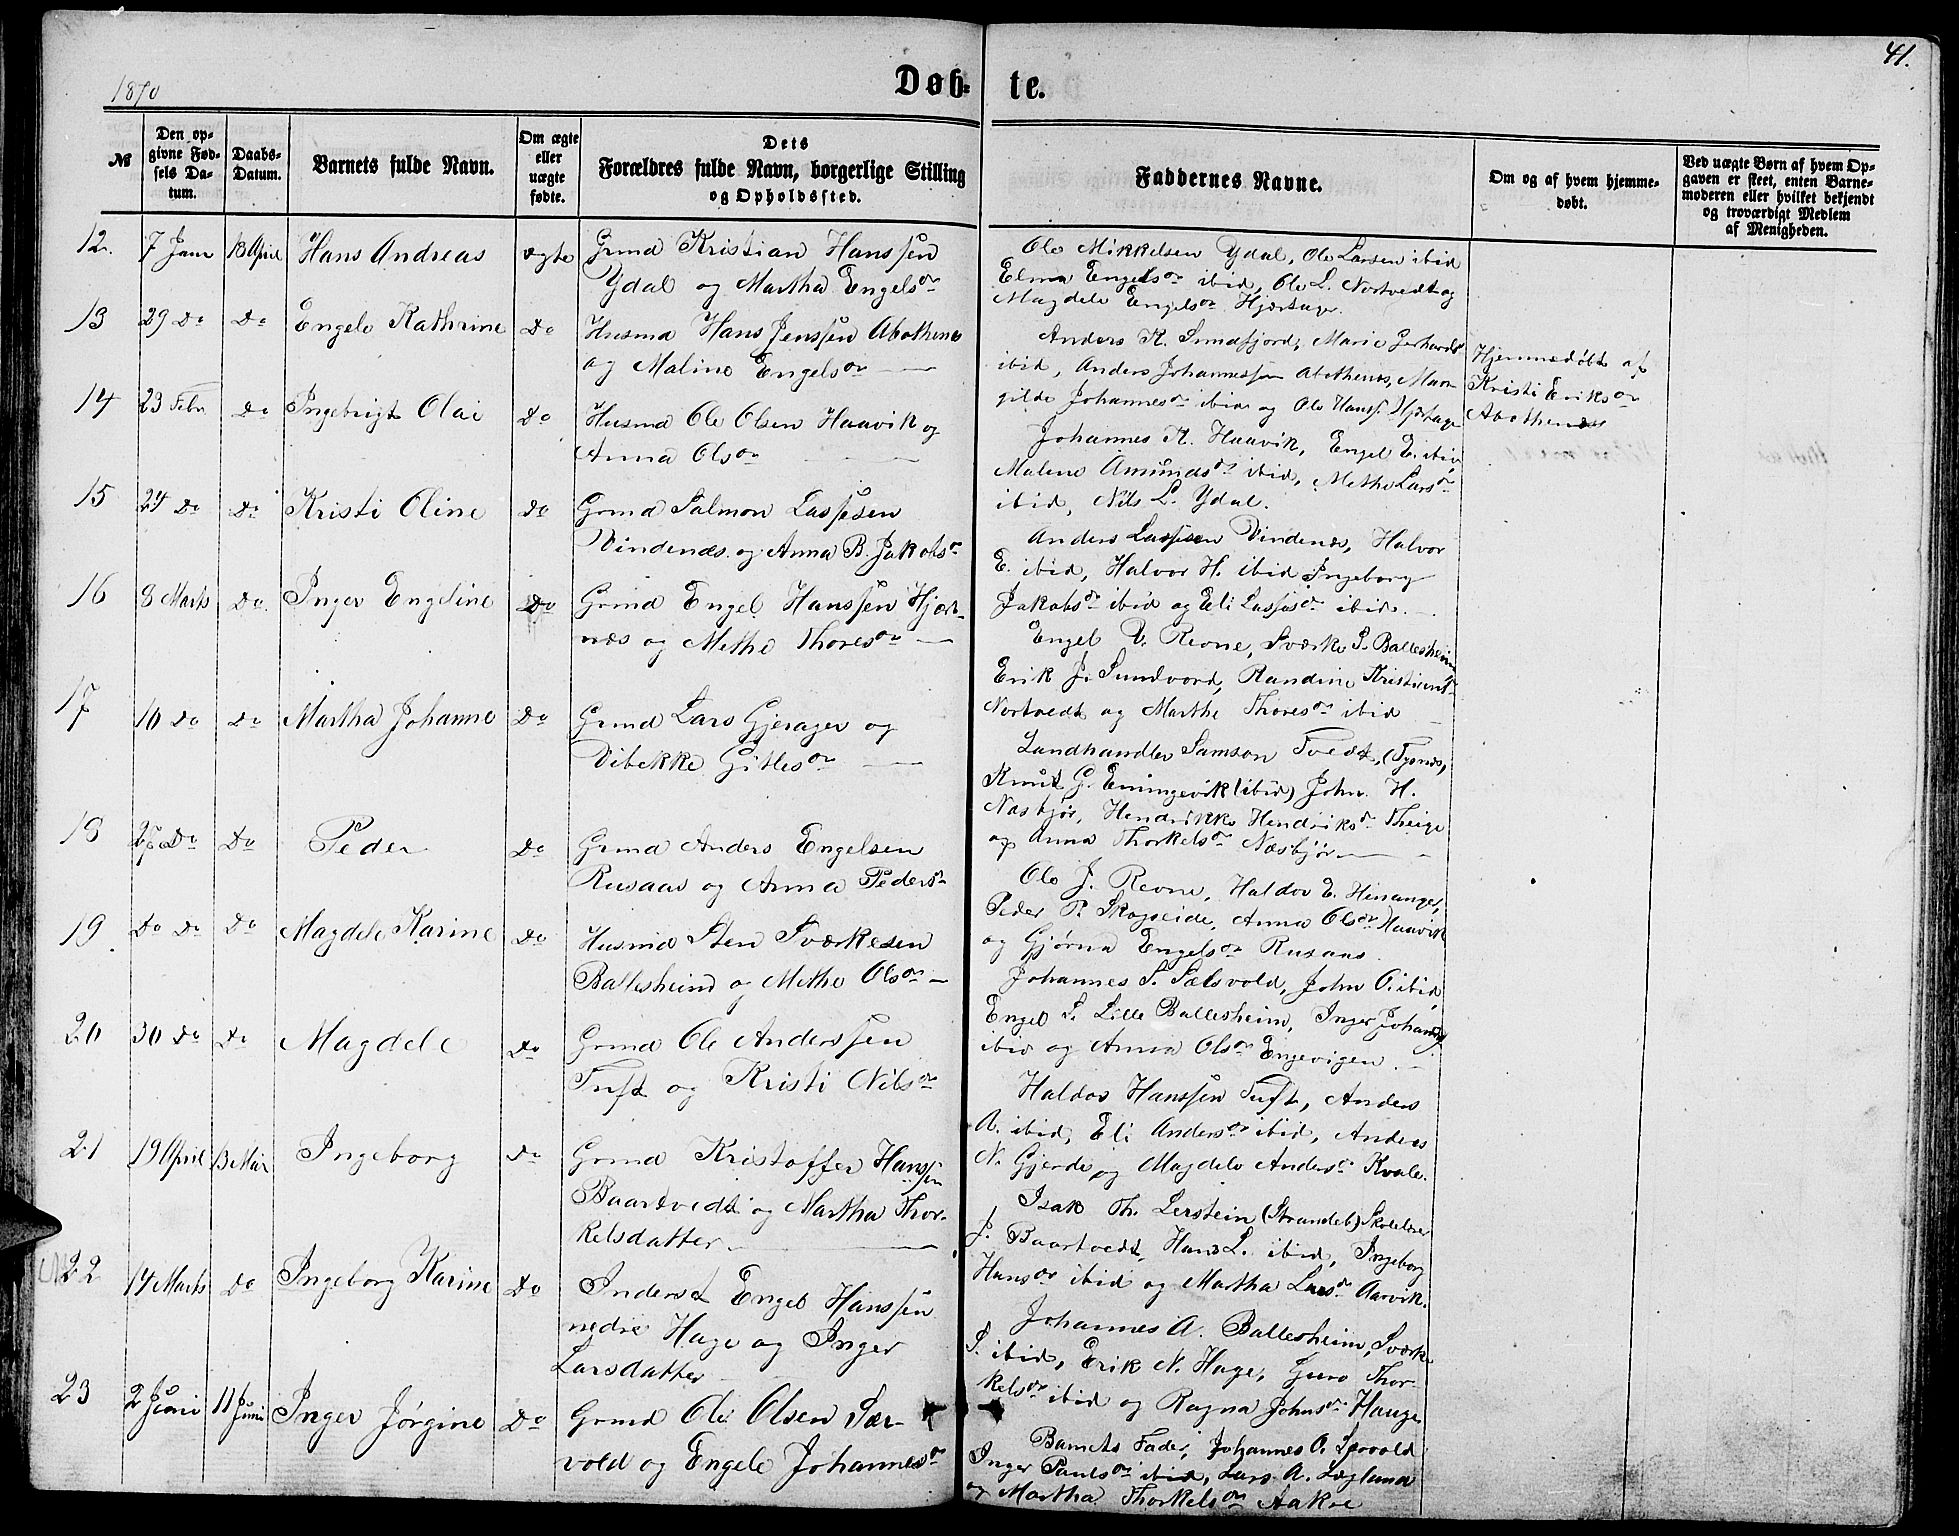 41.
1870
Døb- te.
№
Den op-
givne Fød-
sels Da-
tum.
Daabs-
Datum.
Barnets fulde Navn.
Om ægte
eller
uægte
fødte.
Dets
Forældres fulde Navn, borgerlige Stilling
og Opholdssted.
Faddernes Navne.
Om og af hvem hjemme-
døbt.
Ved uægte Børn af hvem Op-
gaven er skeet, enten Barne-
moderen eller hvilket bekjendt
og troværdigt Medlem
af Menigheden.
12. 7 Janr 18 April Hans Andreas ægte Grmd Kristian Hanssen
Ydal og Martha Engelsdr
Ole Mikkelsen Ydal, Ole Larsen ibid
Engelsdr ibid, Ole L. Nortvedt og
Magdele Engelsdr Hjørtager
13 29 Do Do Engele Kathrine Do Husmd Hans Jenssen Abothenes
og Maline Engelsdr
Anders K. Simafjord, Marie Gerhards
ibid, Anders Johannessen Abothenes, Mar-
gilde Johannesdr ibid og Ole Hanss.
Hjemmedøbt af
Kristi Eriksdr
Abothenes
14 23 Febr Do Ingebrigt Olai Do Husmd Ole Olsen Haavik og
Anna Olsdr
Johannes K. Haavik, Engel E. ibid
Malene Amundsdr ibid, Methe Larsdr
ibid, Nils L. Ydal.
15 24 Do Do Kristi Oline Do Grmd Salmon Lassesen
Vindenæs og Anna B. Jakobsdr
Anders Lassesen Vindenes, Halvor
E. ibid, Halvor H. ibid Ingeborg
Jakobsdr ibid og Eli Lassesdr ibid.
16 8 Marts Do. Inger Engeline Do Grmd Engel Hanssen Hjør-
næs og Methe Thoresdr
Engel V. Revne, Sværke S. Ballesheim
Erik J. Sundvord, Randine Kristians
Nortvedt og Marthe Thoresdr ibid
17 10 Do Do Martha Johanne Do Grmd Lars Gjerager og
Vibekke Gitlesdr
Landhandler Samson Tvedt, (Tysnes,
Knut G. Enningevik (ibid) John H.
Næsbjør, Hendrikke Hendriksdr Theige
og Anna Thorkelsdr Næsbjør
18 27 Do Do Peder Do Grmd Anders Engelsen
Rusaas og Anna Pedersdr
Ole J. Revne, Haldor E. Henanger,
Peder P. Skogseide, Anna Olsdr Haavik
og Gjørna Engelsdr Rusaas
19. Do Do Do Magdele Karine Do Husmd Sten Sværkesen
Ballesheim og Methe Olsdr
Johannes S. Sælsvold, John O. ibid,
Engel S. Lille Ballesheim, Inger Johans
ibid og Anna Olsdr Engevigen
20 30 Do Do Magdele Do Grmd Ole Anderssen
Tuft og Kristi Nilsdr
Haldor Hanssen Tuft, Anders
A. ibid, Eli Andersdr ibid, Anders
N. Gjerde og Magdele Andersdr Kvale
21 19 April 13 Mai Ingeborg Do Grmd Kristoffer Hanssen
Baartvedt og Martha Thor-
kelsdatter
Isak Th. Lerstein (Strandeb) Skolelærer
J. Baartvedt, Hans L. ibid, Ingeborg
Hansdr ibid og Martha Larsdr Aarvik.
22 14 Marts Do Ingeborg Karine Do Inderst Engel Hanssen
nedre Hage og Inger
Larsdatter
Johannes A. Ballesheim, Sværk
S. ibid, Erik N. Hage, Guro Thor-
kelsdr ibid og Ragna Johnsdr Hauge
23 2 Juni 11 Juni Inger Jørgine Do Grmd Ole Olsen Sær-
vold og Engele Johannesdr
Barnets Fader, Johannes O. Særvold
Inger Paulsdr ibid, Lars A. Leglund
og Martha Thorkelsdr Aakre